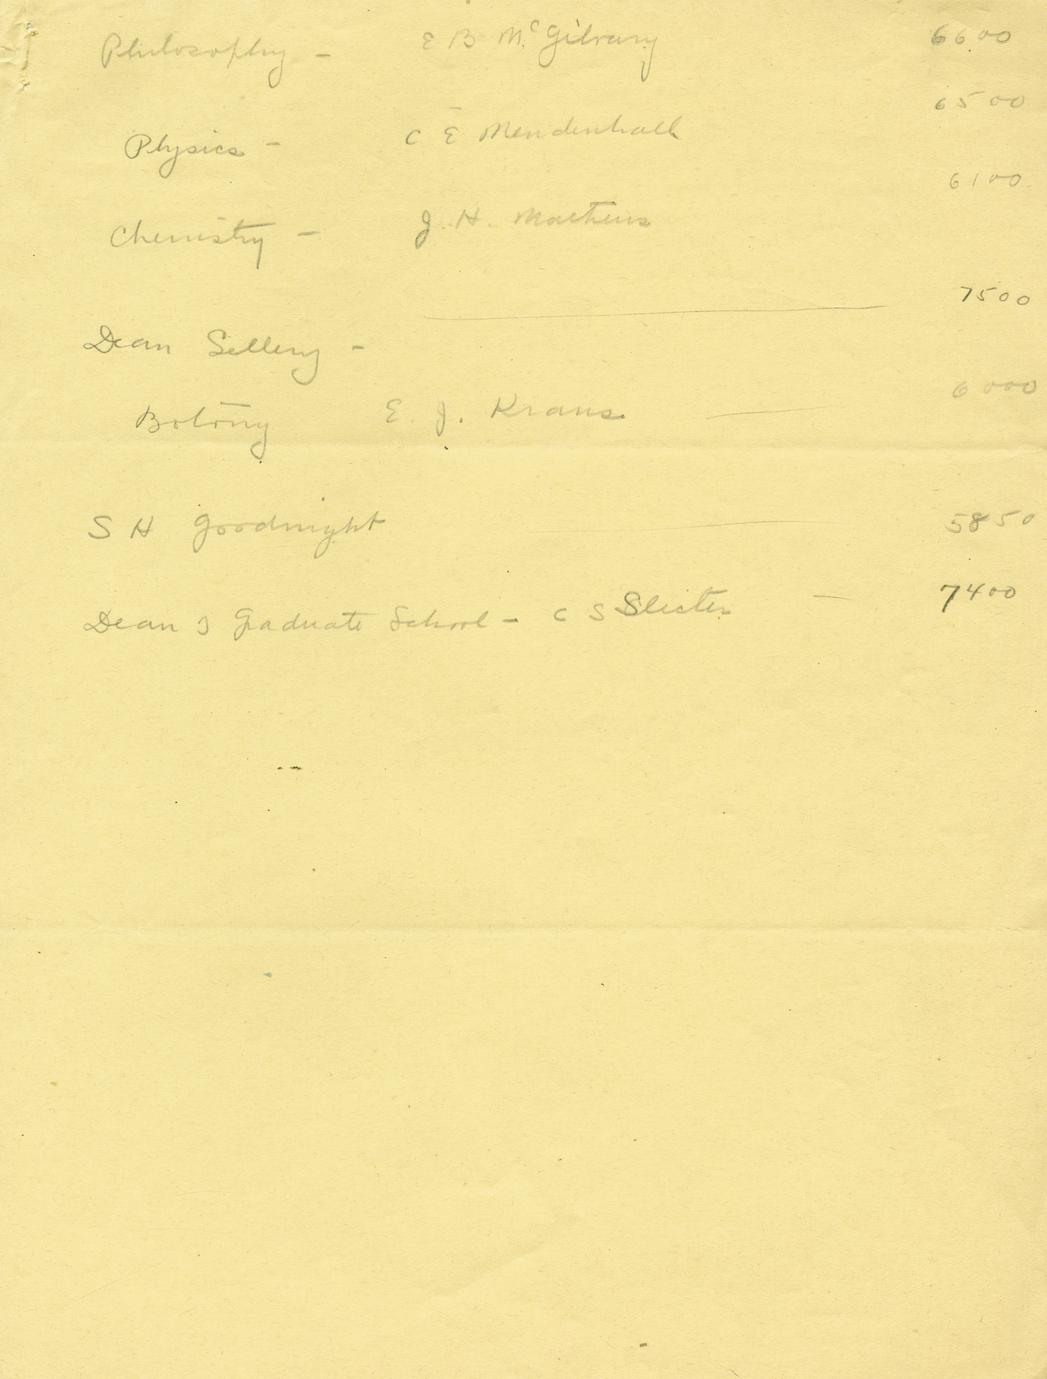 Philosophy - E B McGilvary 6600
Physics - C E Mendenhall 6500
Chemistry - J. H. Mathews 6100
Dean Sellery - 7500
Botony E. J. Kraus 6000
S H Goodnight 5850
Dean of Graduate School - C S Slicter - 7400